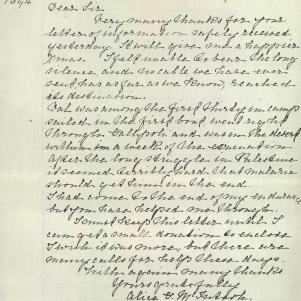 Dear Sir
Very many thanks for your
letter of information safely received
yesterday. It will give me a happier
Xmas. I felt unable to bear the long
silence and no cable we have ever
sent has as far as we know, reached
its destination.
Pat was among the first thirty in camp
sailed in the first boat went right
through Gallipoli and was in the desert
within a week of the evacuation
After the long struggle in Palestine
it seemed terribly hard that malaria
should get him in the end
I had come to the end of my endurance
but you have helped me through.
I must keep this letter until I
can get a small donation to enclose
I wish it was more, but there are
many calls for help these days.
With again many thanks
Yours gratefully
Alice G. Mc